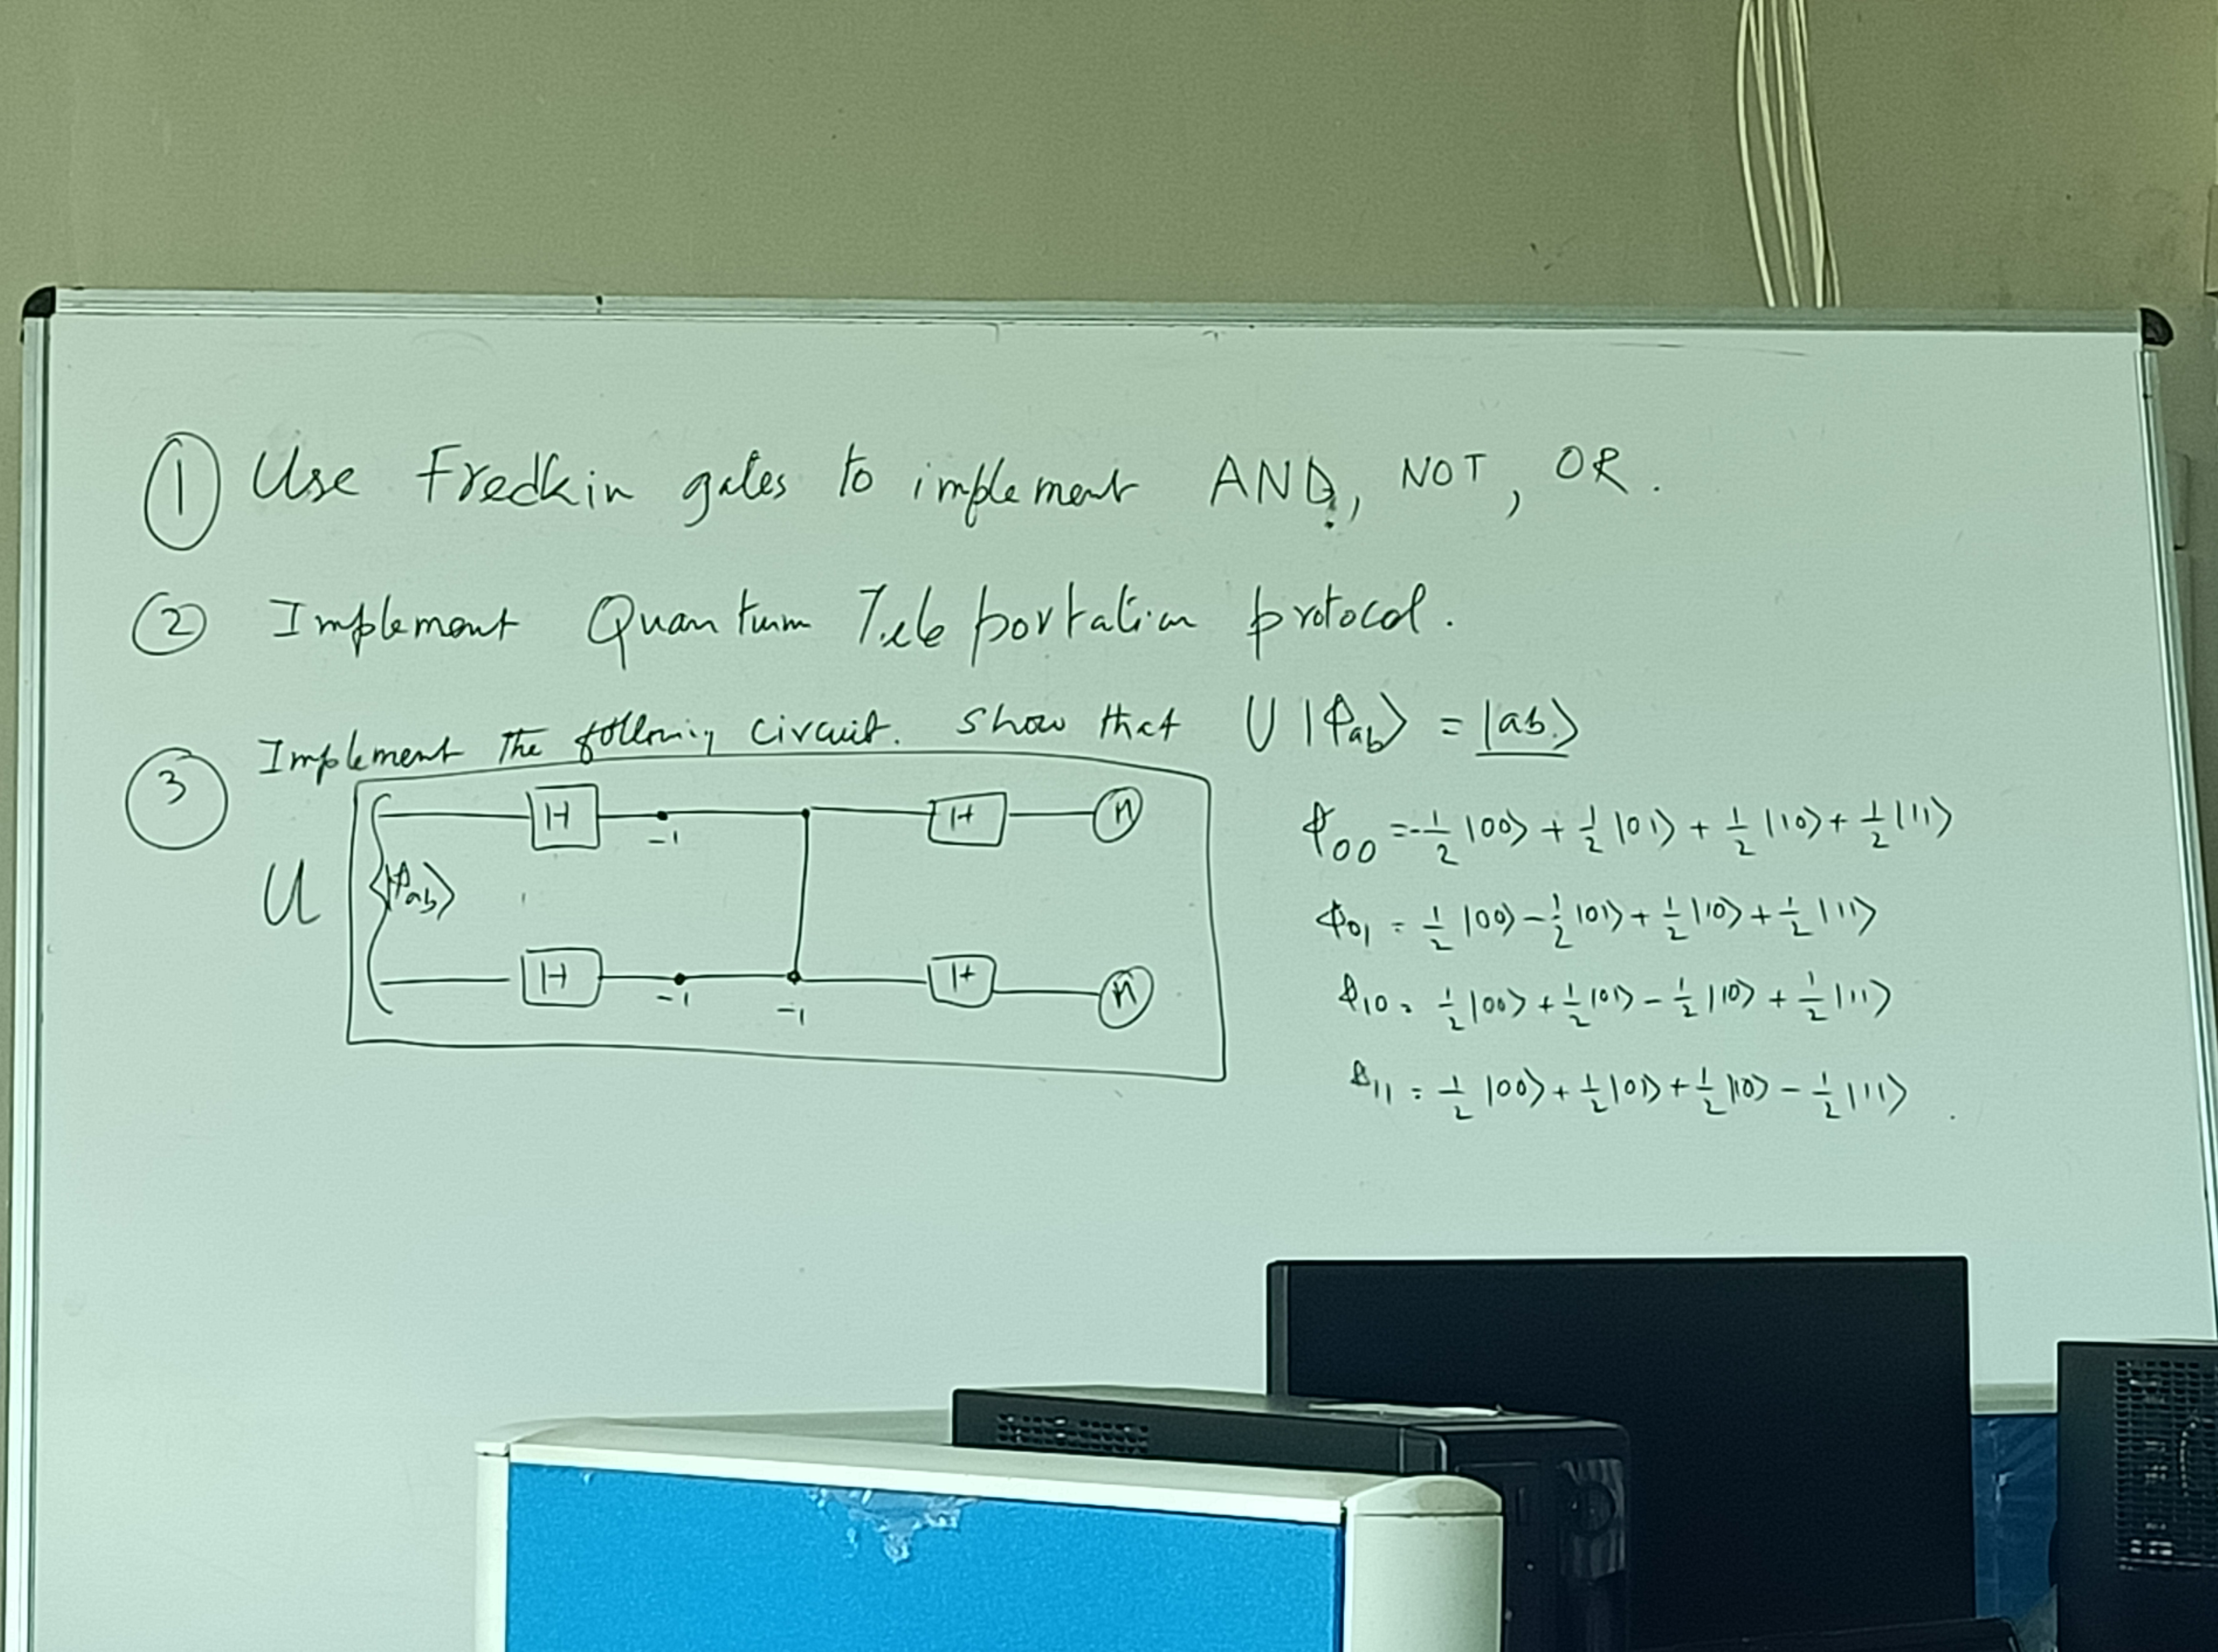 ① Use Fredkin gates to implement AND, NOT, OR.
② Implement Quantum Teleportation protocol.
③ Implement the following circuit. Show that U |ϕab⟩ = |ab⟩
U
|ϕab⟩
H -1 H M
H -1 -1 H M
ϕ00 = -1/2 |00⟩ + 1/2 |01⟩ + 1/2 |10⟩ + 1/2 |11⟩
ϕ01 = 1/2 |00⟩ - 1/2 |01⟩ + 1/2 |10⟩ + 1/2 |11⟩
ϕ10 = 1/2 |00⟩ + 1/2 |01⟩ - 1/2 |10⟩ + 1/2 |11⟩
ϕ11 = 1/2 |00⟩ + 1/2 |01⟩ + 1/2 |10⟩ - 1/2 |11⟩.